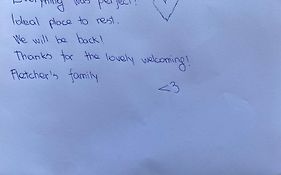 Everything was perfect!
Ideal place to rest.
We will be back!
Thanks for the lovely welcoming!
Fletcher's family
<3